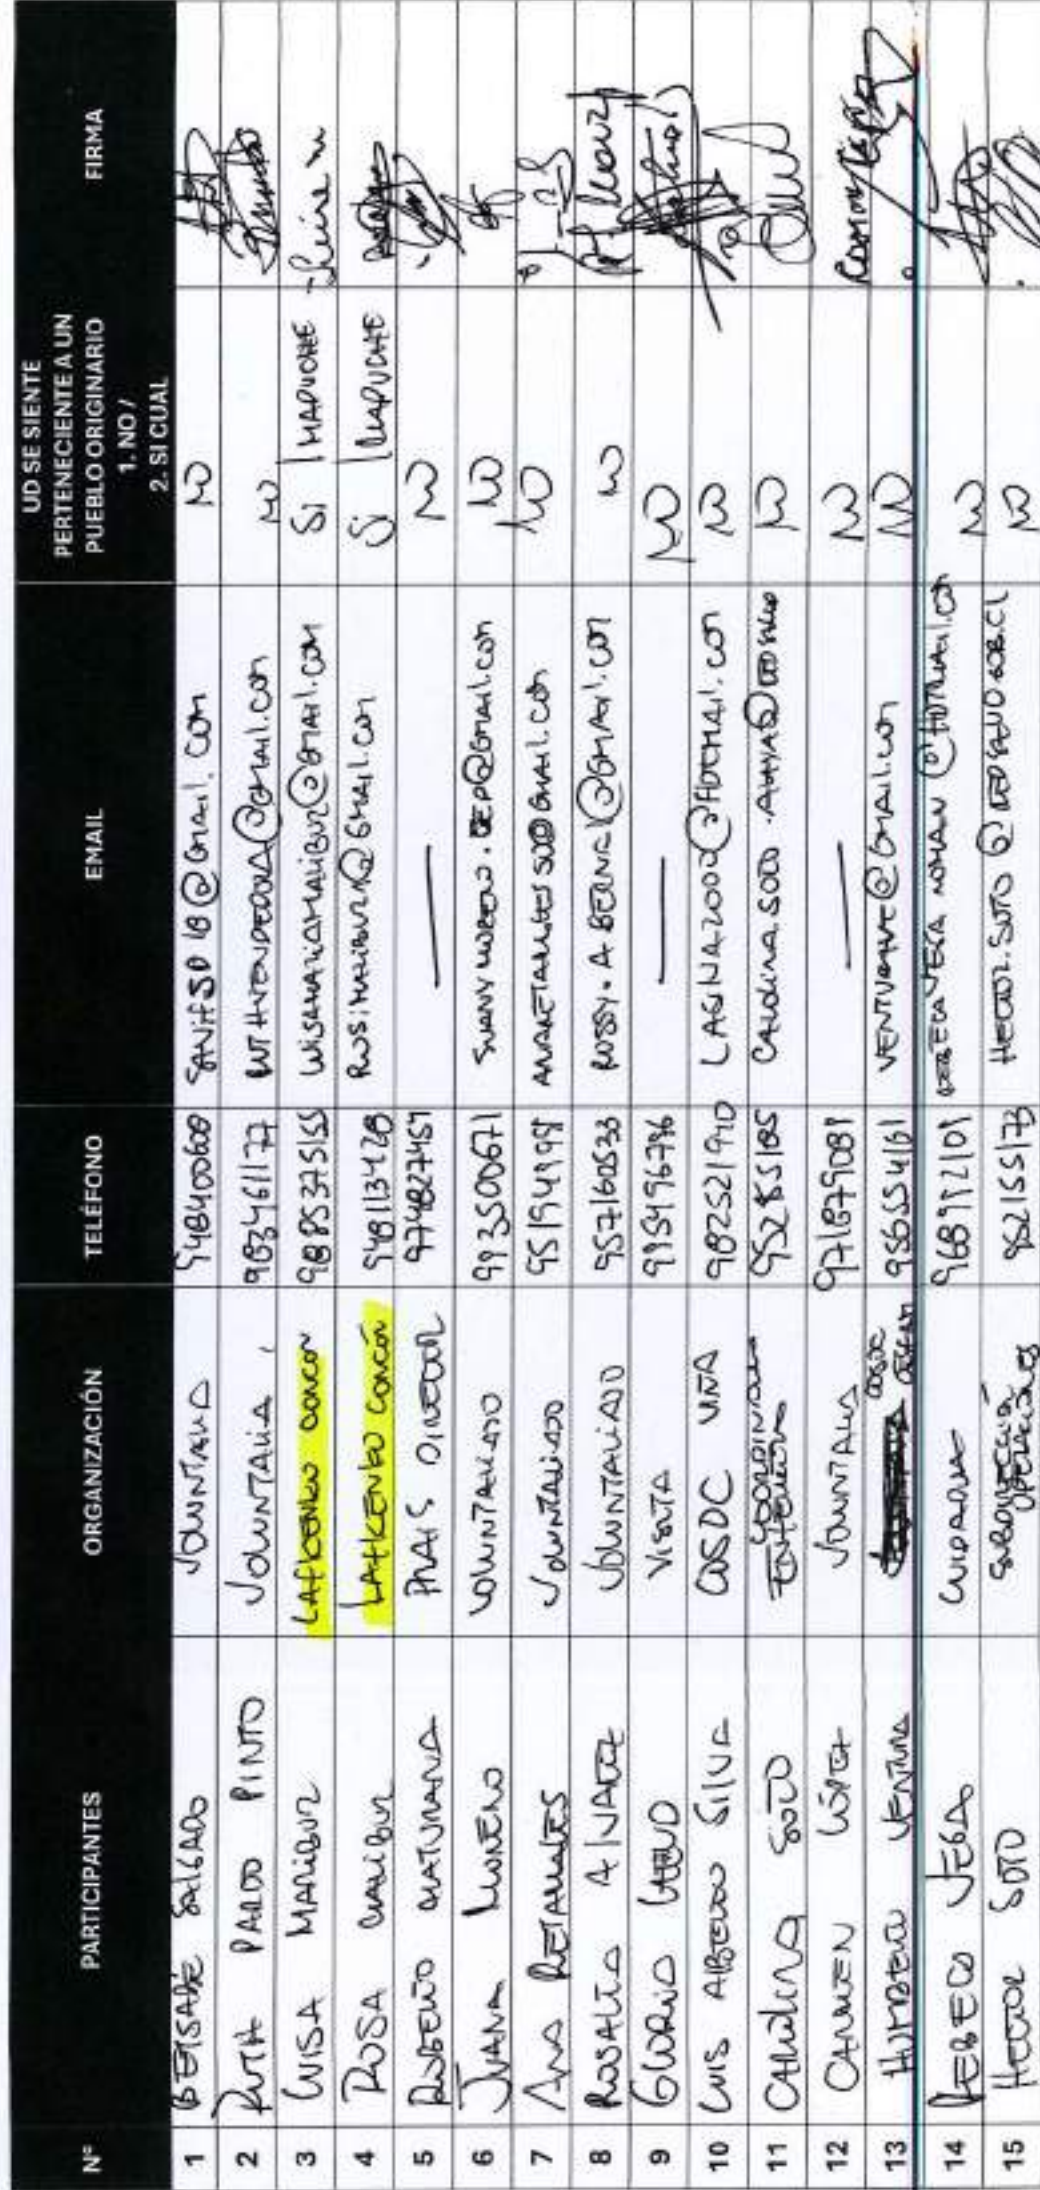 Nº PARTICIPANTES ORGANIZACIÓN TELÉFONO EMAIL UD SE SIENTE PERTENECIENTE A UN PUEBLO ORIGINARIO 1. NO / 2. SI CUAL FIRMA
1 BETSABÉ SALGADO VOLUNTARIA 948400600 @GMAIL.COM NO
2 RUTH PARDO PINTO VOLUNTARIA 983461177 @GMAIL.COM NO
3 LUISA MARIBUR LAFKENKO CONCON 988537S155 LUISAMARIAMARIBUR@GMAIL.COM SI / MAPUCHE
4 ROSA MARIBUR LAFKENKO CONCÓN 948113428 ROSIMARIBUR@GMAIL.COM SI / MAPUCHE
5 ROBERTO MATURANA PRAIS DIRECTOR 974827457 — NO
6 JUANA MORENO VOLUNTARIADO 993500671 @GMAIL.COM NO
7 ANA RETAMALES VOLUNTARIADO 951949998 NO
8 ROSALIA ALVAREZ VOLUNTARIADO 957160533 ROSSY.A.BERNAL@GMAIL.COM NO
9 GLORIA VISITA 995496796 — NO
10 LUIS ALBERTO SILVA COSDC VIÑA 982521910 LAGUNA2000@HOTMAIL.COM NO
11 CAROLINA SOTO COORDINADORA 952855185 CAROLINA.SOTO.AMAYA@ NO
12 CARMEN LÓPEZ VOLUNTARIA 971879081 — NO
13 HUMBERTO VENTURA COSDC 956554161 @GMAIL.COM NO
14 REBECA VEGA CUIDADORA 968992109 REBECA VEGA ROMAN @HOTMAIL.COM NO
15 HECTOR SOTO SUBDIRECCIÓN OPERACIONES 952155173 HECTOR.SOTO@REDSALUD.GOB.CL NO